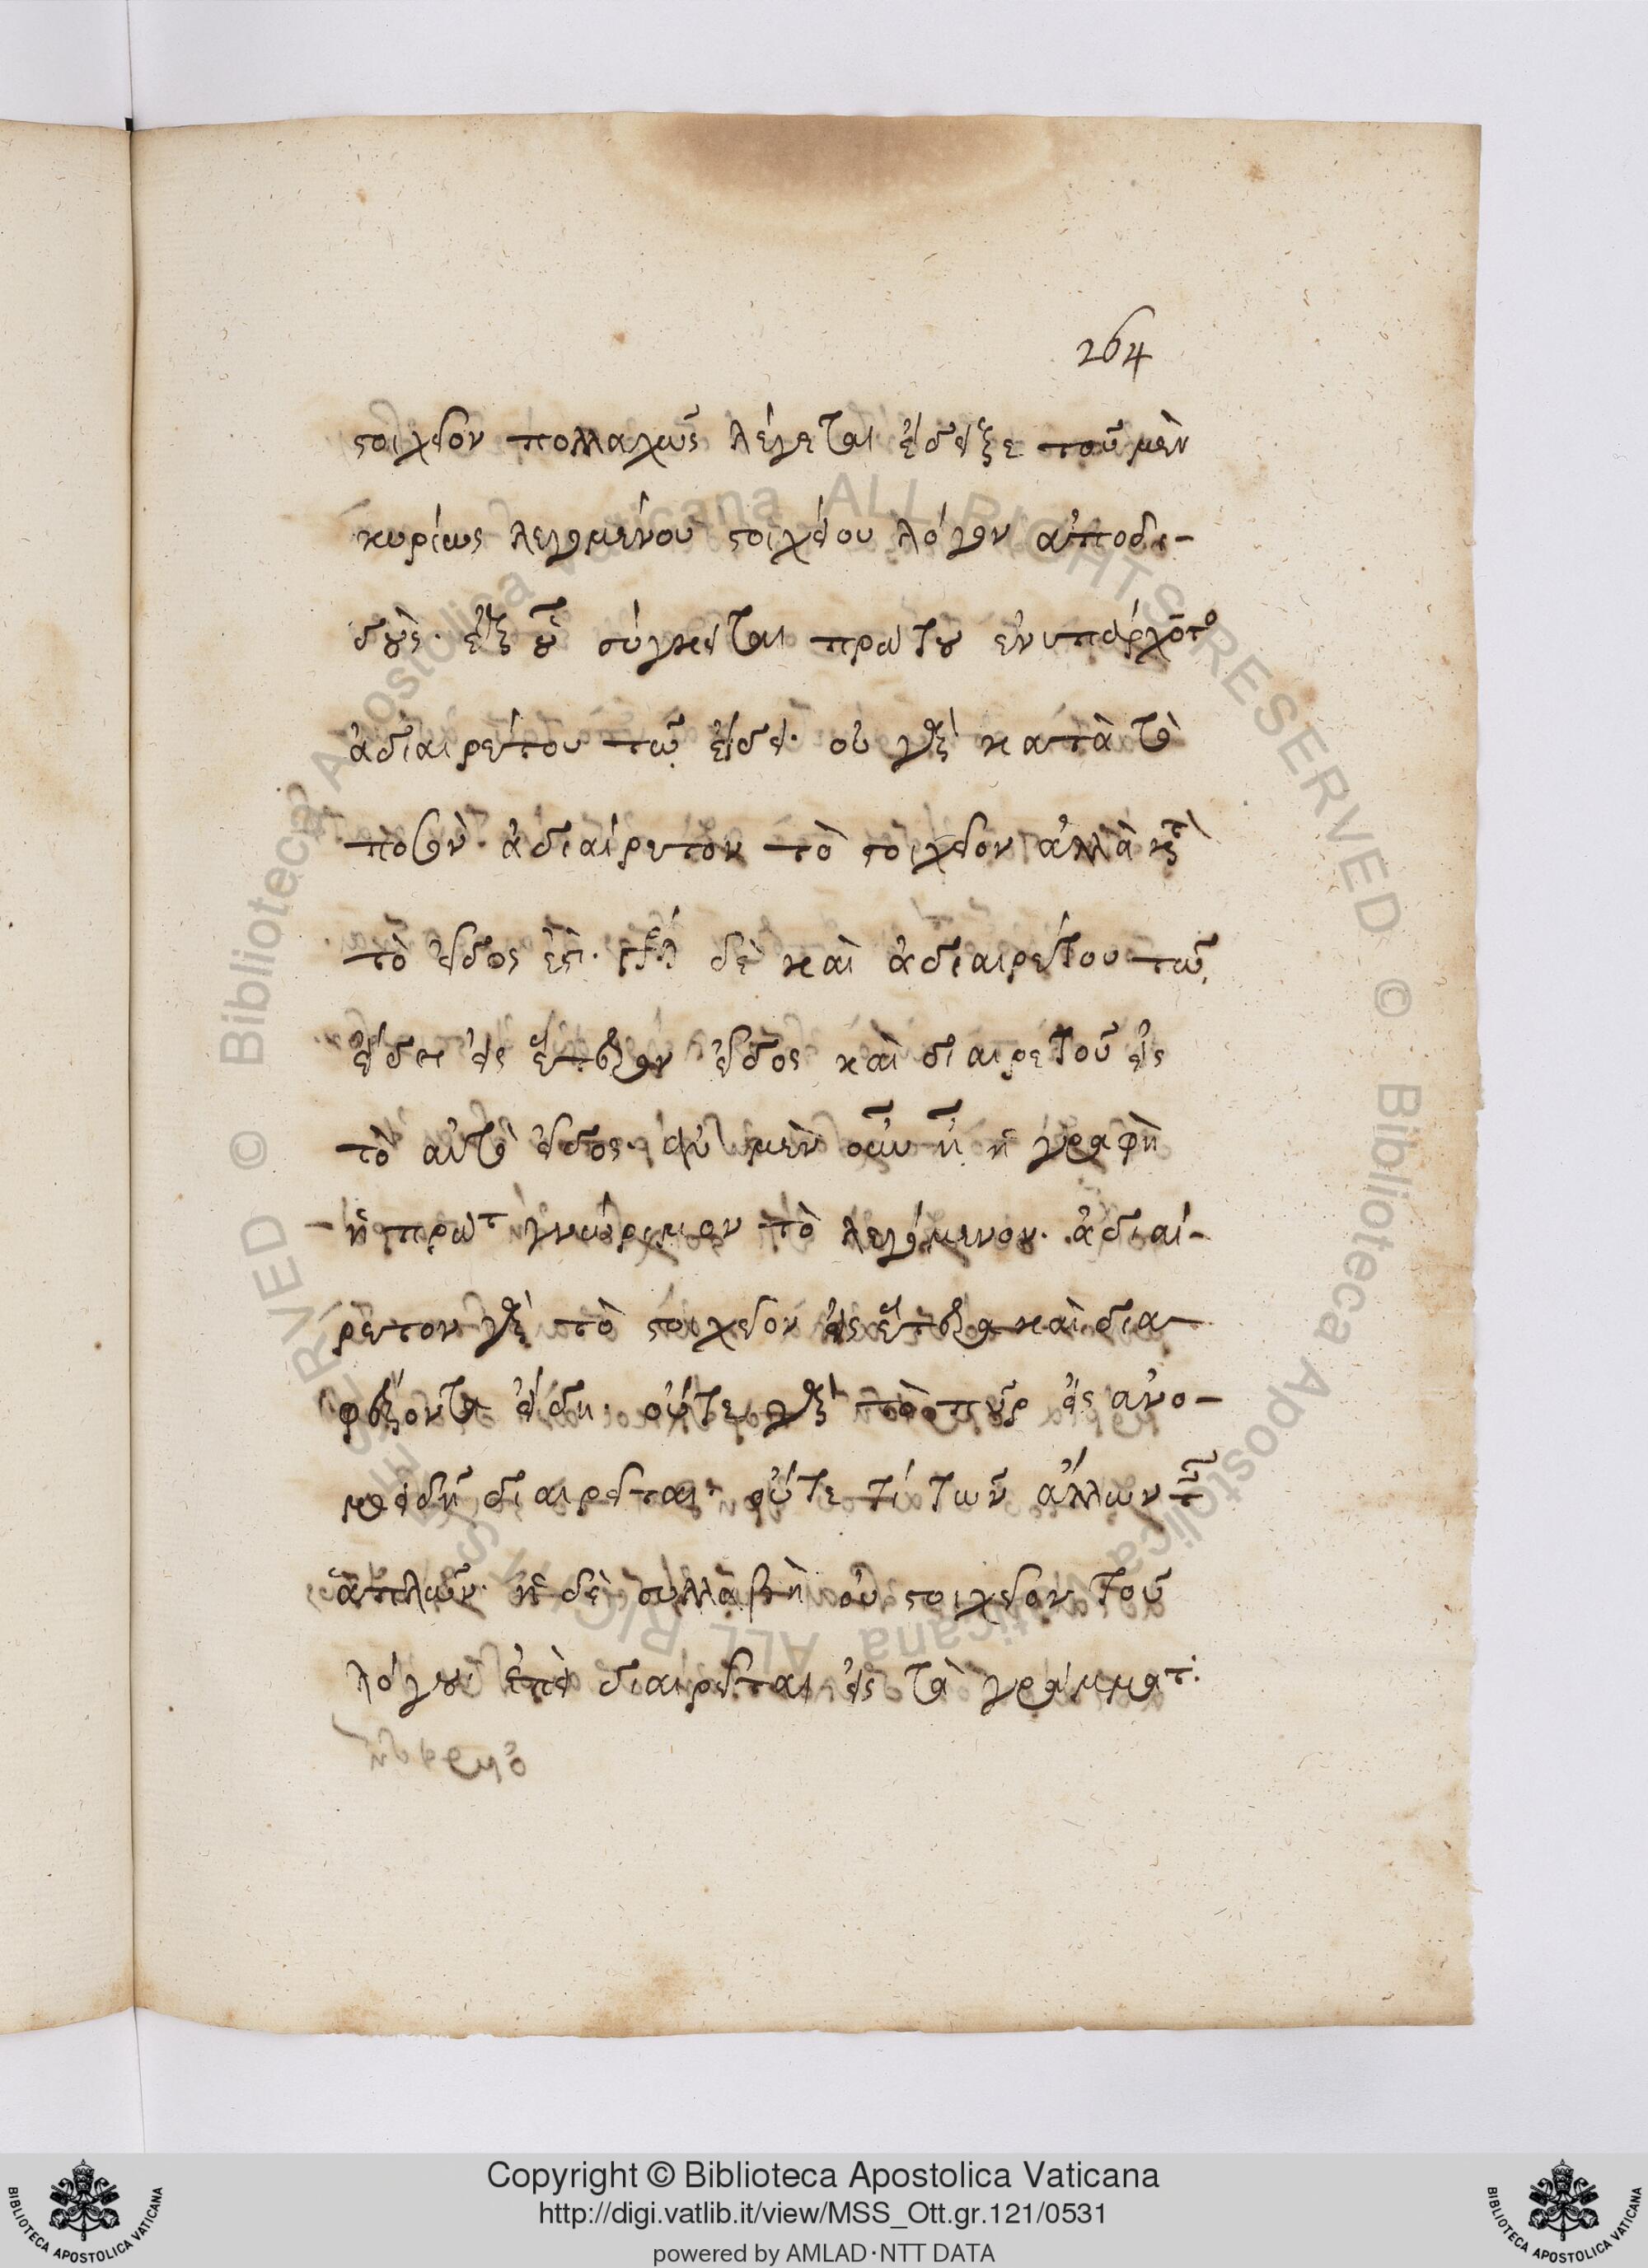 264
στοιχεῖον πολλαχῶς λέγεται ἔδειξε τοῦ μὲν
κυρίως λεγομένου στοιχείου λόγον ἀποδι-
δοὺς· ἐξ οὗ σύγκειται πρώτου ἐνυπάρχοντος
ἀδιαιρέτου τῷ εἴδει· οὐ γὰρ κατὰ τὸ
ποσὸν ἀδιαίρετον τὸ στοιχεῖον ἀλλὰ κατὰ
τὸ εἶδος ἐστί· δὲ καὶ ἀδιαιρέτου τῷ
εἴδει εἰς ἕτερον εἶδος καὶ διαιρετοῦ εἰς
τὸ αὐτὸ εἶδος· μὲν οὖν ᾖ ἡ γραφὴ
ἡ πρώτη γνώριμον τὸ λεγόμενον· ἀδιαί-
ρετον γὰρ τὸ στοιχεῖον εἰς ἕτερα καὶ δια-
φέροντα εἴδη· οὔτε γὰρ τὸ πῦρ εἰς ἀνο-
μοειδῆ διαιρεῖται· οὔτε τί τῶν ἄλλων τῶν
ἁπλῶν· ἡ δὲ συλλαβὴ οὐ στοιχεῖον τοῦ
λόγου ἐπεὶ διαιρεῖται εἰς τὰ γράμματα:
Copyright © Biblioteca Apostolica Vaticana
http://digi.vatlib.it/view/MSS_Ott.gr.121/0531
powered by AMLAD·NTT DATA
BIBLIOTECA APOSTOLICA VATICANA
BIBLIOTECA APOSTOLICA VATICANA
© Biblioteca Apostolica Vaticana ALL RIGHTS RESERVED
© Biblioteca Apostolica Vaticana ALL RIGHTS RESERVED